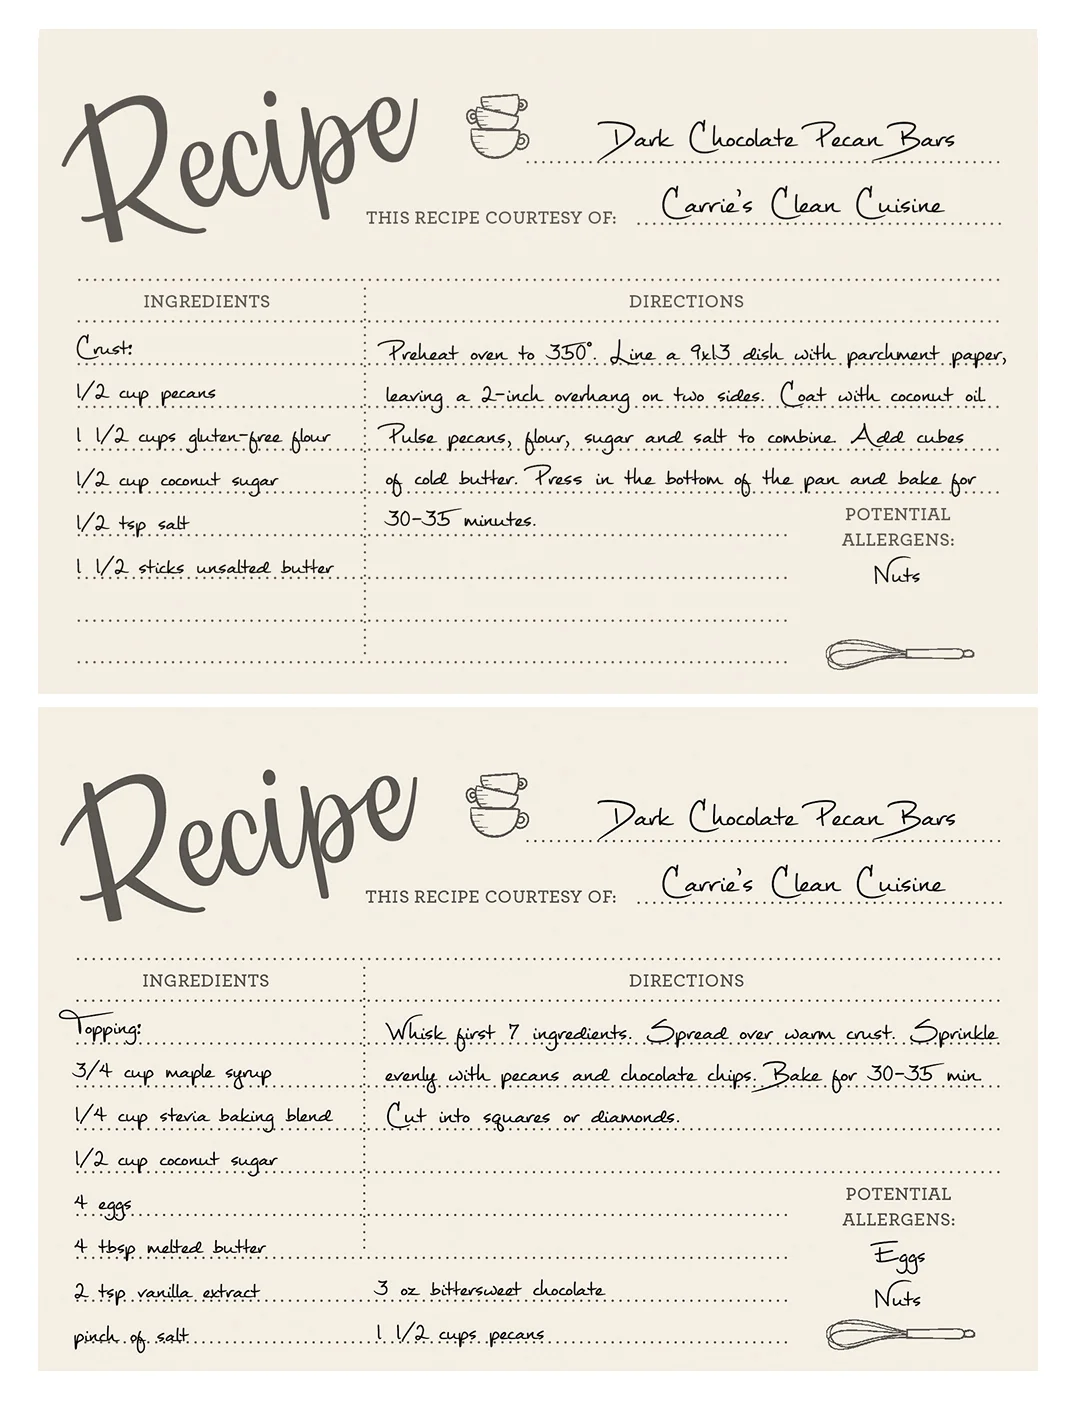 Recipe
Dark Chocolate Pecan Bars
THIS RECIPE COURTESY OF: Carrie's Clean Cuisine
INGREDIENTS
Crust:
1/2 cup pecans
1 1/2 cups gluten-free flour
1/2 cup coconut sugar
1/2 tsp salt
1 1/2 sticks unsalted butter
DIRECTIONS
Preheat oven to 350°. Line a 9x13 dish with parchment paper,
leaving a 2-inch overhang on two sides. Coat with coconut oil
Pulse pecans, flour, sugar and salt to combine. Add cubes
of cold butter. Press in the bottom of the pan and bake for
30-35 minutes.
POTENTIAL
ALLERGENS:
Nuts
Recipe
Dark Chocolate Pecan Bars
THIS RECIPE COURTESY OF: Carrie's Clean Cuisine
INGREDIENTS
Topping:
3/4 cup maple syrup
1/4 cup stevia baking blend
1/2 cup coconut sugar
4 eggs
4 tbsp melted butter
2 tsp vanilla extract
pinch of salt
3 oz bittersweet chocolate
1 1/2 cups pecans
DIRECTIONS
Whisk first 7 ingredients. Spread over warm crust. Sprinkle
evenly with pecans and chocolate chips. Bake for 30-35 min
Cut into squares or diamonds.
POTENTIAL
ALLERGENS:
Eggs
Nuts